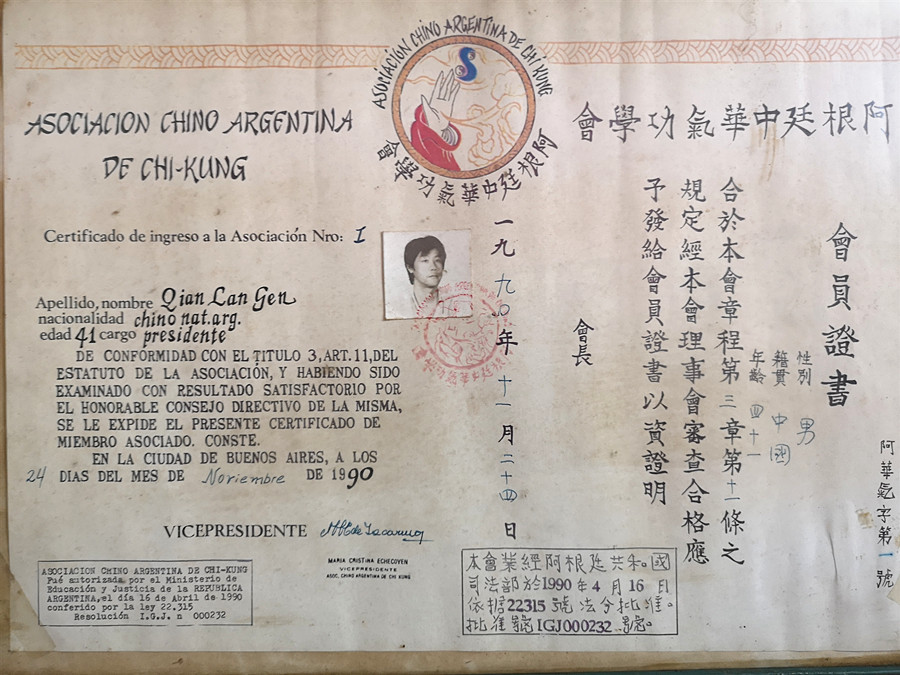 ASOCIACIÓN CHINO ARGENTINA DE CHI KUNG
阿根廷中華氣功學會
ASOCIACION CHINO ARGENTINA
DE CHI-KUNG
Certificado de ingreso a la Asociación Nro: I
Apellido, nombre Qian Lan Gen
nacionalidad chino nat.arg.
edad 41 cargo presidente
DE CONFORMIDAD CON EL TITULO 3, ART. 11, DEL
ESTATUTO DE LA ASOCIACIÓN, Y HABIENDO SIDO
EXAMINADO CON RESULTADO SATISFACTORIO POR
EL HONORABLE CONSEJO DIRECTIVO DE LA MISMA,
SE LE EXPIDE EL PRESENTE CERTIFICADO DE
MIEMBRO ASOCIADO. CONSTE.
EN LA CIUDAD DE BUENOS AIRES, A LOS
24 DIAS DEL MES DE Noviembre DE 1990
VICEPRESIDENTE
MARIA CRISTINA ECHECOVEN
VICEPRESIDENTE
ASOC. CHINO ARGENTINA DE CHI KUNG
ASOCIACION CHINO ARGENTINA DE CHI-KUNG
Fué autorizada por el Ministerio de
Educación y Justicia de la REPUBLICA
ARGENTINA, el día 16 de Abril de 1990
conferido por la ley 22.315
Resolución I.G.J. n 000232
會學功氣華中廷根阿
阿華氣字第一號
會員證書
性別 男
籍貫 中國
年齡 四十一
合於本會章程第三章第十一條之
規定經本會理事會審查合格應
予發給會員證書以資證明
會長
一九九〇年十一月二十四日
本會業經阿根廷共和國
司法部於1990年4月16日
依據22315號法令批准。
批准號IGJ000232號。